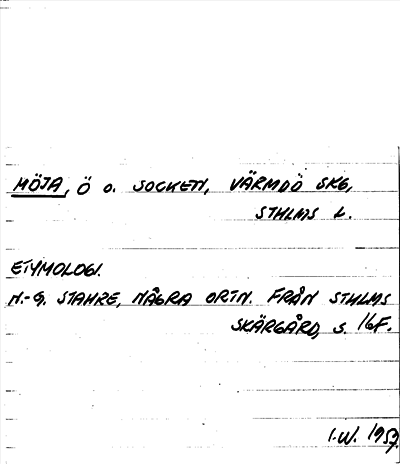 MÖJA, Ö o. SOCKEN, VÄRMDÖ SKG,
STHLMS L.
ETYMOLOGI.
N.-G. STAHRE, NÅGRA ORTN. FRÅN STHLMS
SKÄRGÅRD, S. 16F.
I.W. 1957.